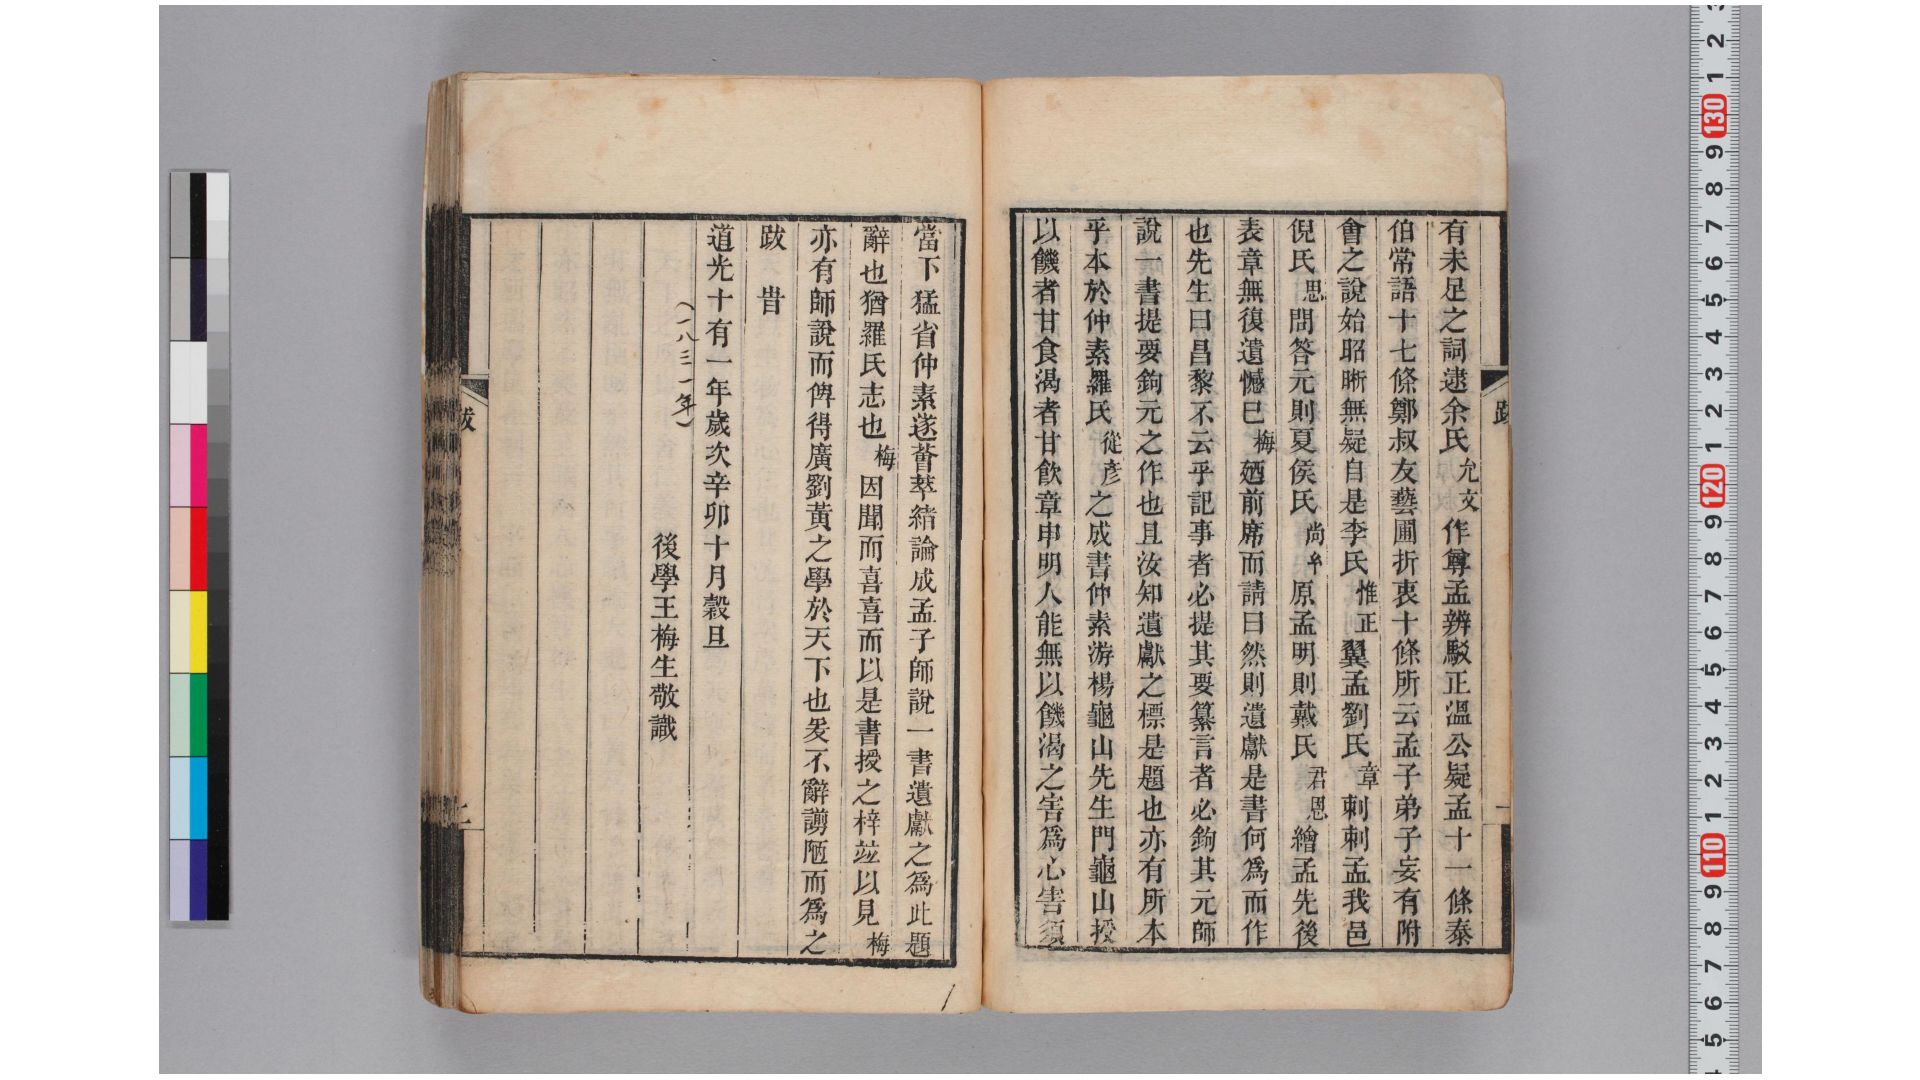 有未足之詞逮余氏允文作尊孟辨駁正溫公疑孟十一條泰
伯常語十七條鄭叔友藝圃折衷十條所云孟子弟子妄有附
會之說始昭晰無疑自是李氏惟正翼孟劉氏章刺刺孟我邑
倪氏思問答元則夏侯氏尚𤣥原孟明則戴氏君恩繪孟先後
表章無復遺憾已梅廼前席而請曰然則遺獻是書何爲而作
也先生曰昌黎不云乎記事者必提其要纂言者必鉤其元師
說一書提要鉤元之作也且汝知遺獻之標是題也亦有所本
乎本於仲素羅氏從彥之成書仲素游楊龜山先生門龜山授
以饑者甘食渴者甘飲章申明人能無以饑渴之害爲心害須
跋
一
當下猛省仲素遂薈萃緒論成孟子師說一書遺獻之爲此題
辭也猶羅氏志也梅因聞而喜喜而以是書授之梓竝以見梅
亦有師說而俾得廣劉黃之學於天下也爰不辭譾陋而爲之
跋 旹
道光十有一年歲次辛卯十月穀旦
(一八三一年)
後學王梅生敬識
跋
3
2
1
130
9
8
7
6
5
4
3
2
1
120
9
8
7
6
5
4
3
2
1
110
9
8
7
6
5
4